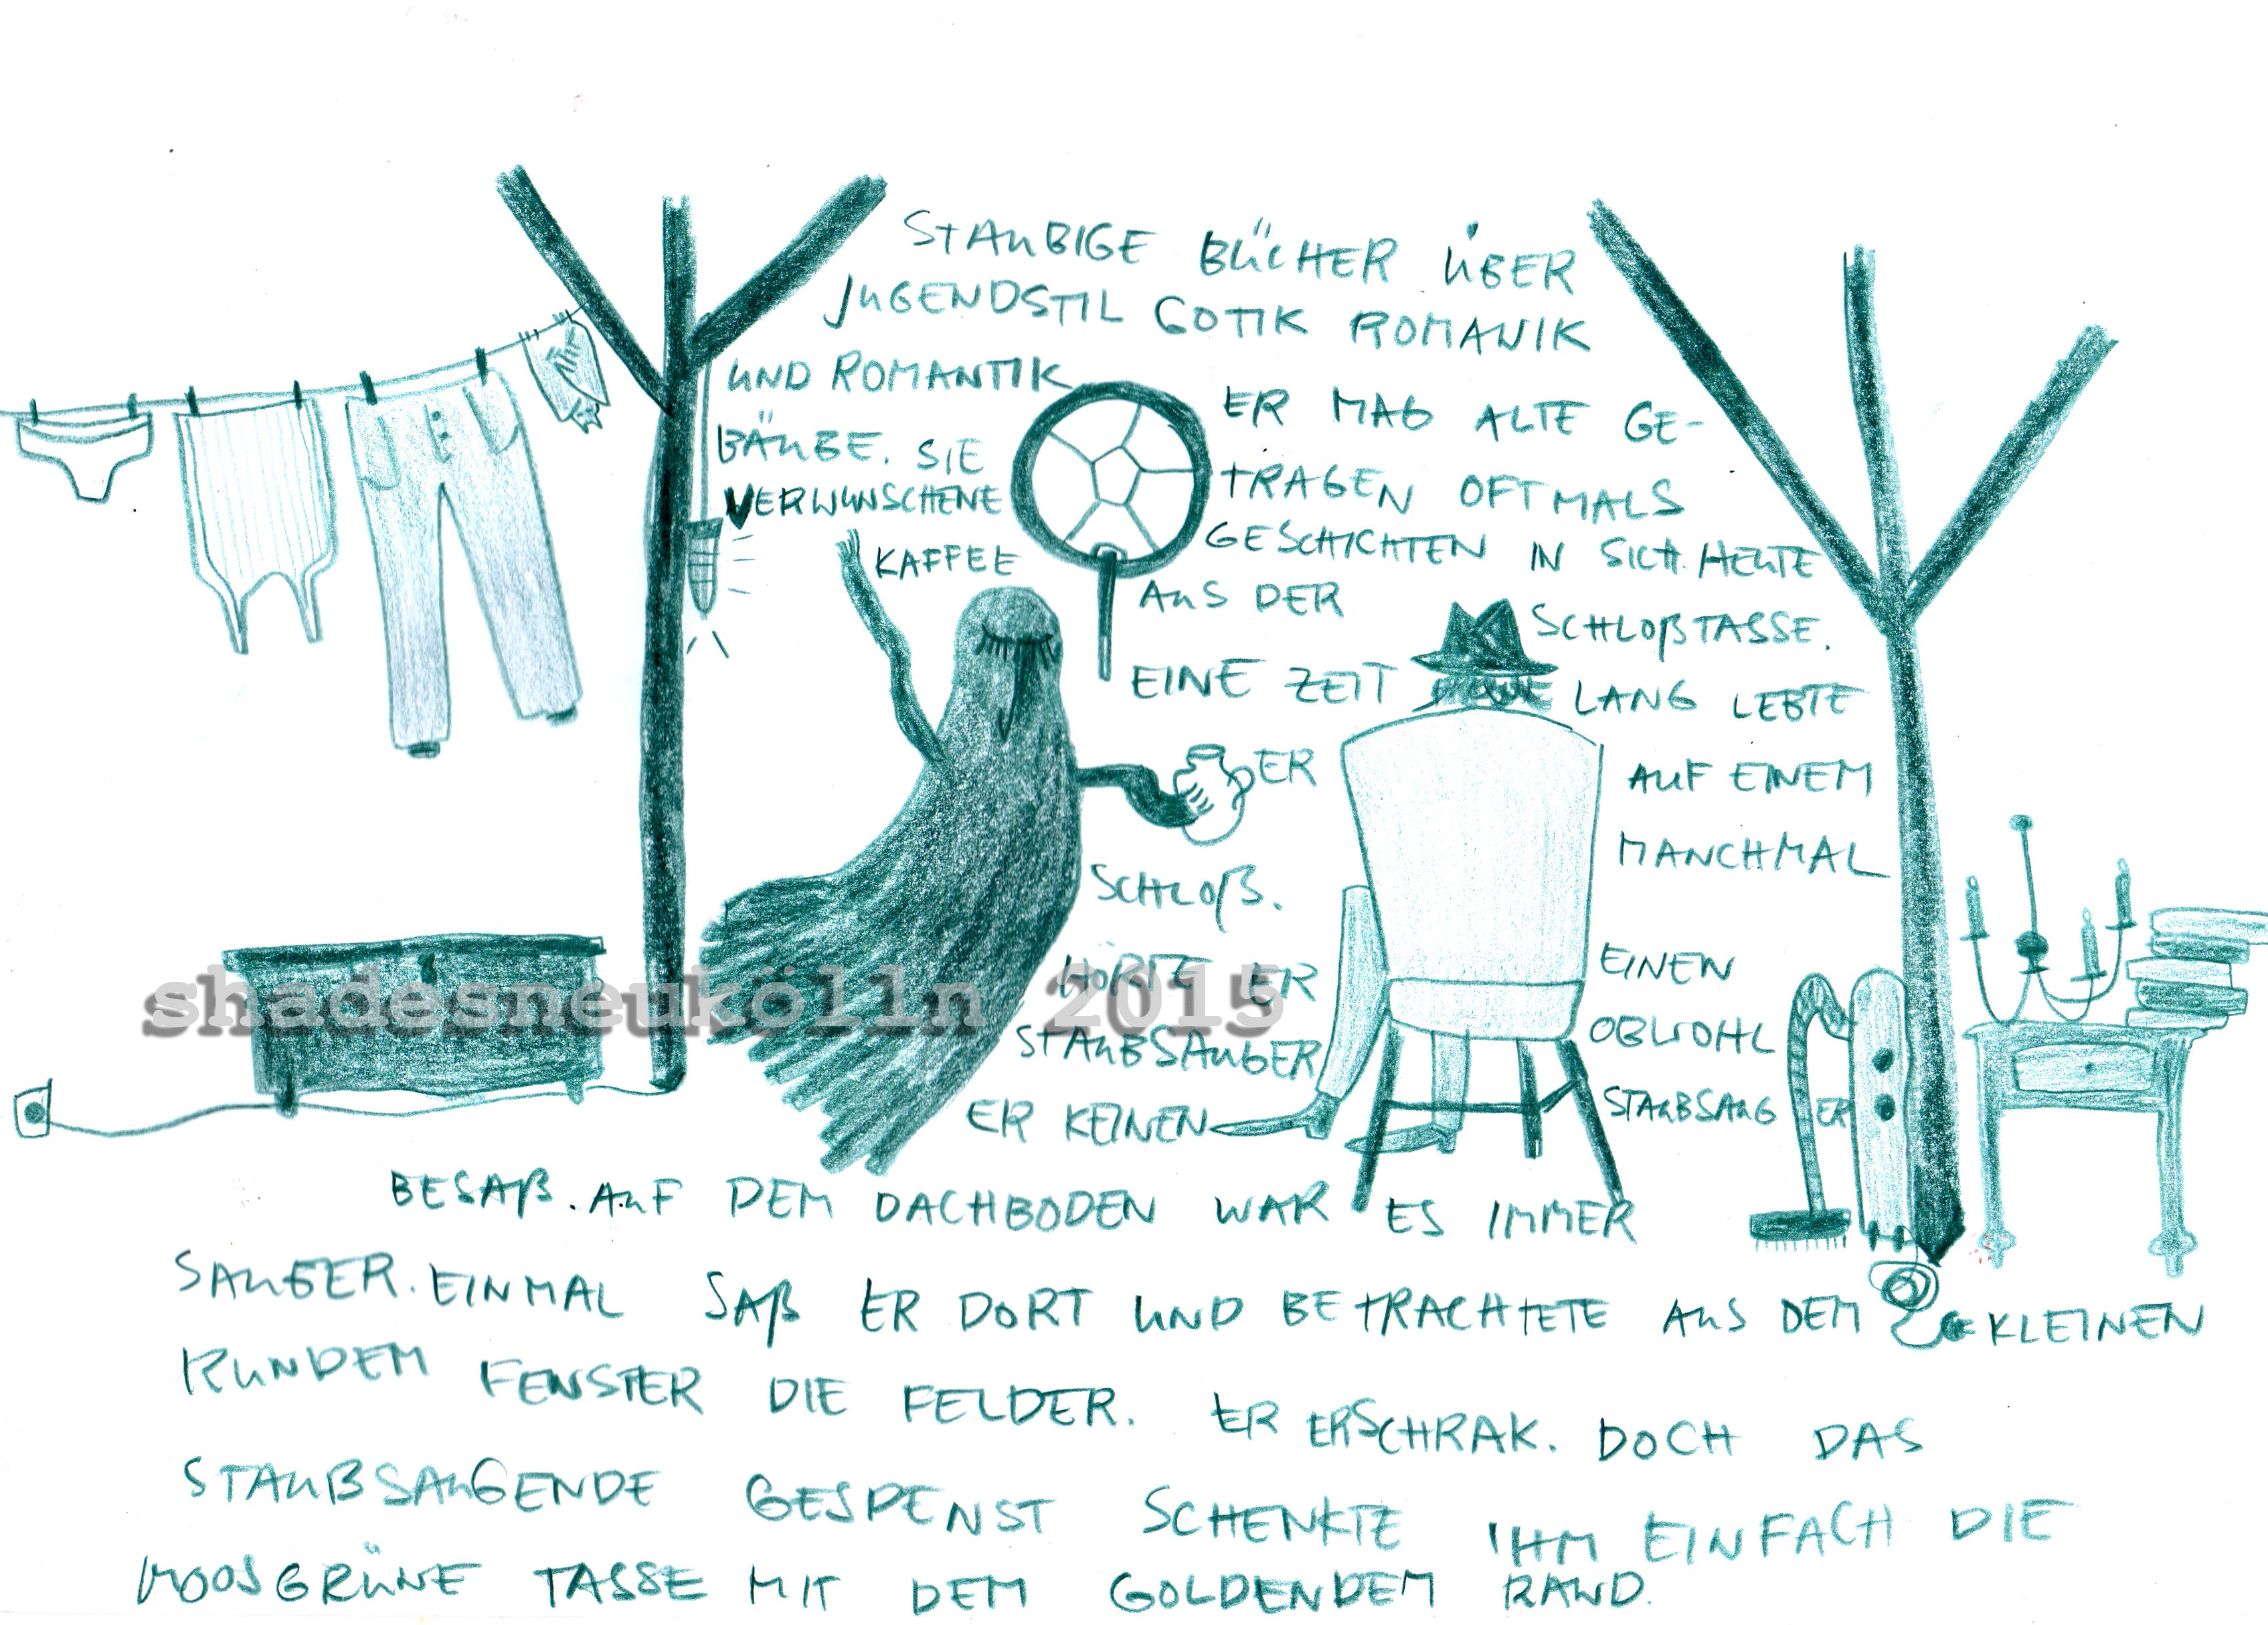 STAUBIGE BÜCHER ÜBER
JUGENDSTIL GOTIK ROMANIK
UND ROMANTIK ER MAG ALTE GE-
BÄUBE. SIE TRAGEN OFTMALS
VERWUNSCHENE GESCHICHTEN IN SICH. HEUTE
KAFFEE AUS DER SCHLOßTASSE.
EINE ZEIT LANG LEBTE
ER AUF EINEM
SCHLOß. MANCHMAL
HÖRTE ER EINEN
STAUBSAUGER OBWOHL
ER KEINEN STAUBSAUGER
BESAß. AUF DEM DACHBODEN WAR ES IMMER
SAUBER. EINMAL SAß ER DORT UND BETRACHTETE AUS DEM KLEINEN
RUNDEM FENSTER DIE FELDER. ER ERSCHRAK. DOCH DAS
STAUBSAUGENDE GESPENST SCHENKTE IHM EINFACH DIE
MOOSGRÜNE TASSE MIT DEM GOLDENDEM RAND.
shadesneukölln 2015